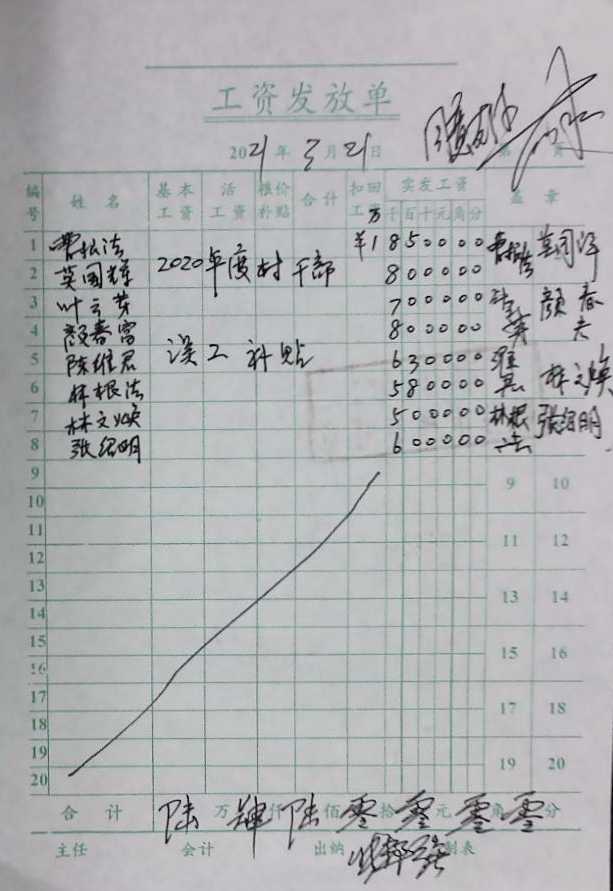 工资发放单
2021年3月21日
编号 姓名 基本工资 活工资 粮价补贴 合计 扣回工资 实发工资 盖章
万千百十元角分
1 曹松法 ¥1850000
2 英国辉 2020年度村干部 800000
3 叶云芳 700000
4 颜春富 800000
5 陈维君 误工补贴 630000
6 林根法 580000 林文焕
7 林文焕 500000 林根法 张绍明
8 张绍明 600000
9 9 10
10
11 11 12
12
13 13 14
14
15 15 16
16
17 17 18
18
19 19 20
20
合计 陆万肆仟陆佰零拾零元零角零分
主任 会计 出纳 制表